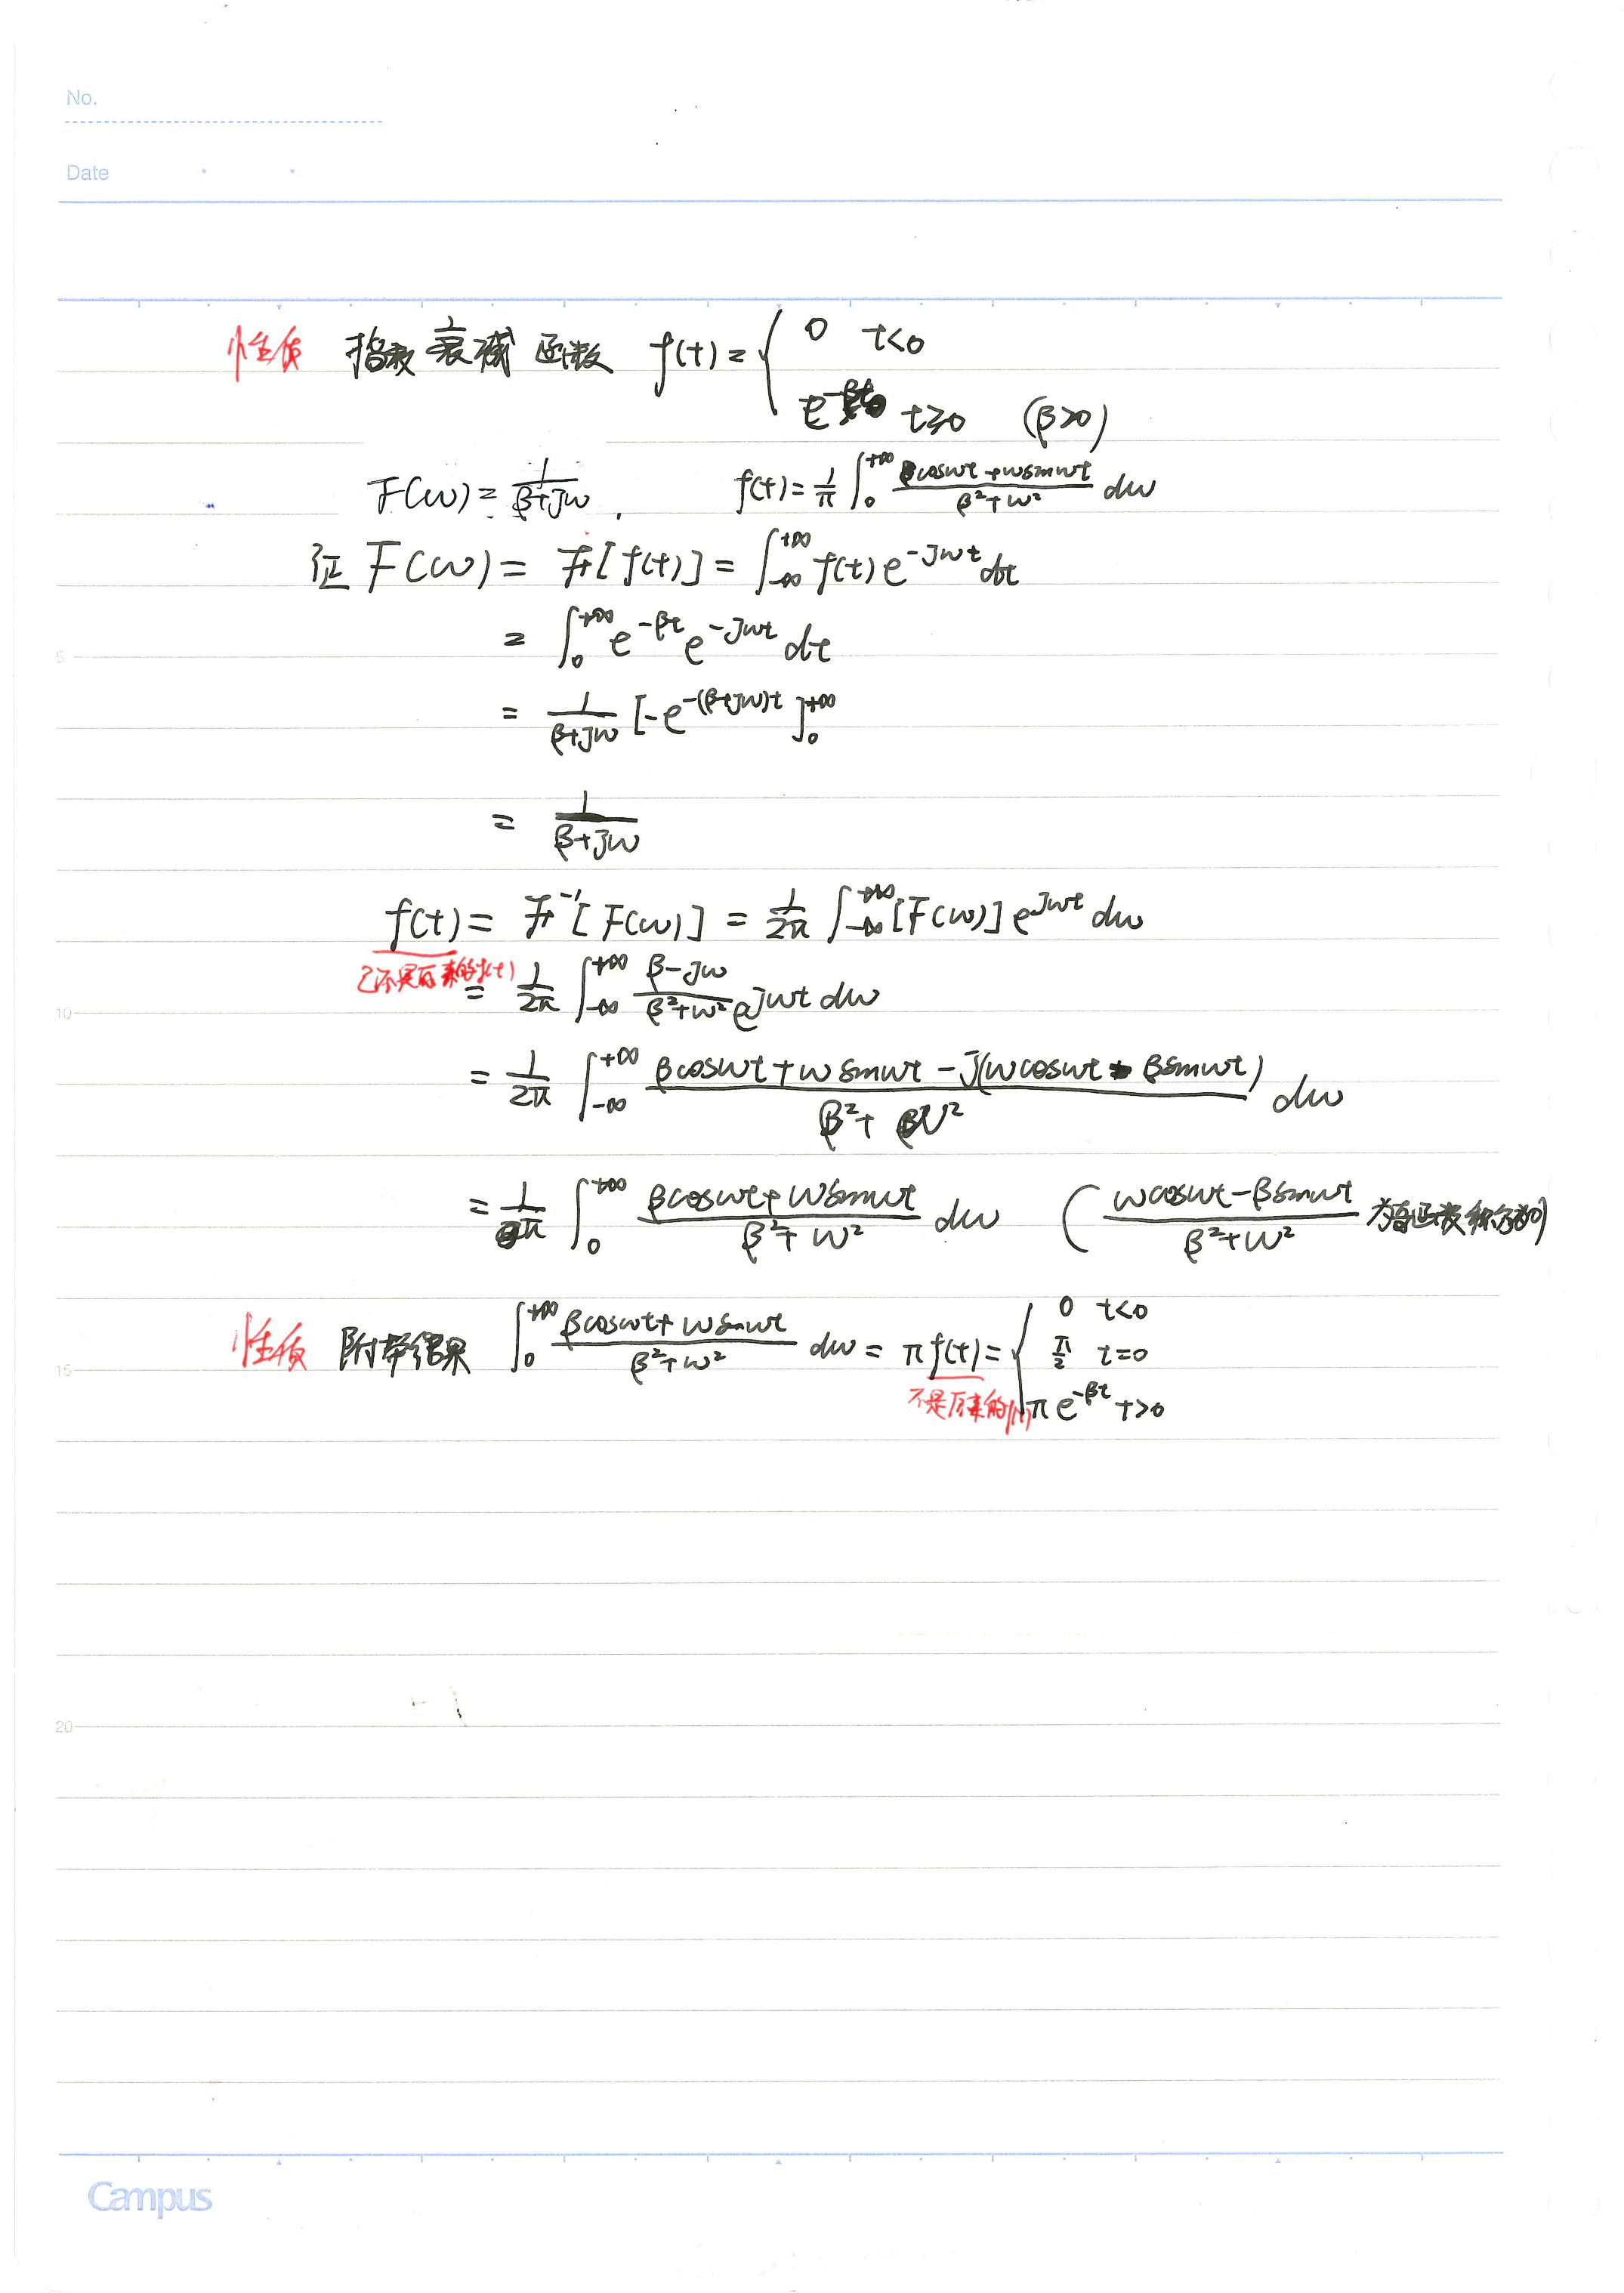 No.
Date
性质 指数衰减函数 f(t) = { 0 t<0
e^{-βt} t≥0 (β>0)
F(ω) = 1/(β+jω), f(t) = 1/π ∫_0^{+∞} (βcosωt + ωsinωt)/(β²+ω²) dω
证 F(ω) = ℱ[f(t)] = ∫_{-∞}^{+∞} f(t) e^{-jωt} dt
= ∫_0^{+∞} e^{-βt} e^{-jωt} dt
5
= 1/(β+jω) [-e^{-(β+jω)t}]_0^{+∞}
= 1/(β+jω)
f(t) = ℱ^{-1}[F(ω)] = 1/2π ∫_{-∞}^{+∞} [F(ω)] e^{jωt} dω
已不是原来的f(t)
= 1/2π ∫_{-∞}^{+∞} (β-jω)/(β²+ω²) e^{jωt} dω
10
= 1/2π ∫_{-∞}^{+∞} (βcosωt + ωsinωt - j(ωcosωt - βsinωt))/(β²+ω²) dω
= 1/π ∫_0^{+∞} (βcosωt + ωsinωt)/(β²+ω²) dω ( (ωcosωt - βsinωt)/(β²+ω²) 为奇函数积分为0)
性质 附带结果 ∫_0^{+∞} (βcosωt + ωsinωt)/(β²+ω²) dω = πf(t) = { 0 t<0
π/2 t=0
15
πe^{-βt} t>0
不是原来的f(t)
20
Campus